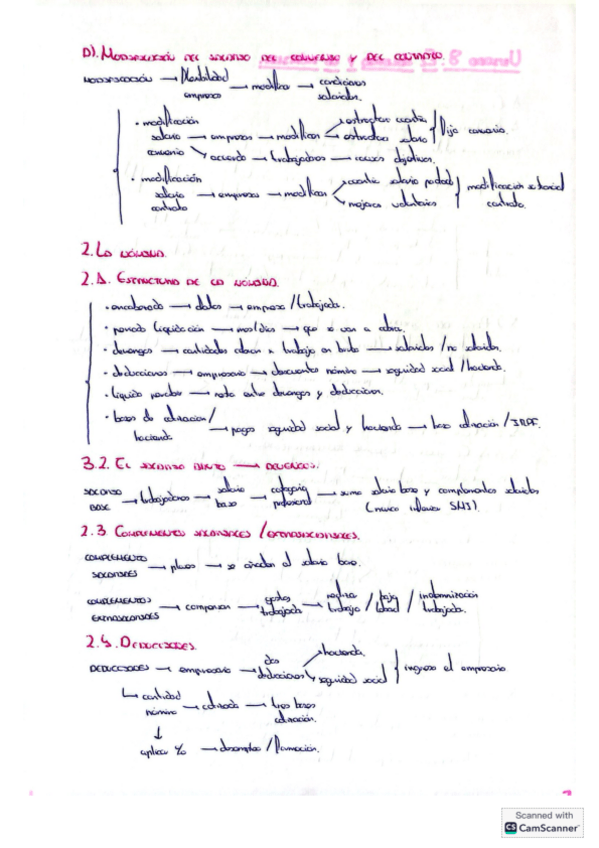 D). Modificación del salario del convenio y del contrato.
modificación → flexibilidad empresa → modificar → condiciones salariales.
· modificación salario convenio → empresas → modifican → estructura cuantía / estructura salario } fijo convenio.
acuerdo → trabajadores → causas objetivas.
· modificación salario contrato → empresas → modifican → cuantía salario pactado / mejoras voluntarias } modificación sustancial contrato.
2. La nómina.
2.1. Estructura de la nómina.
· encabezado → datos → empresa / trabajador.
· periodo liquidación → mes/días → que se van a cobrar.
· devengos → cantidades cobran x trabajo en bruto → salariales / no salariales.
· deducciones → empresario → descuentos nómina → seguridad social / hacienda.
· líquido percibir → resta entre devengos y deducciones.
· bases de cotización / hacienda → pagos seguridad social y hacienda → base cotización / IRPF.
3.2. El salario bruto → devengos.
salario base → trabajadores → salario base → categoría profesional → suma salario base y complementos salariales
(nunca inferior SMI).
2.3 Complementos salariales / extrasalariales.
complemento salariales → pluses → se añaden al salario base.
complementos extrasalariales → compensan → gastos trabajador → realizar trabajo / baja laboral / indemnización trabajador.
2.4. Deducciones.
deducciones → empresario → dos deducciones → hacienda / seguridad social } ingresa el empresario
↳ cantidad nómina → calculada → tres bases cotización.
↓
aplicar % → desempleo / formación.
Scanned with
CS CamScanner